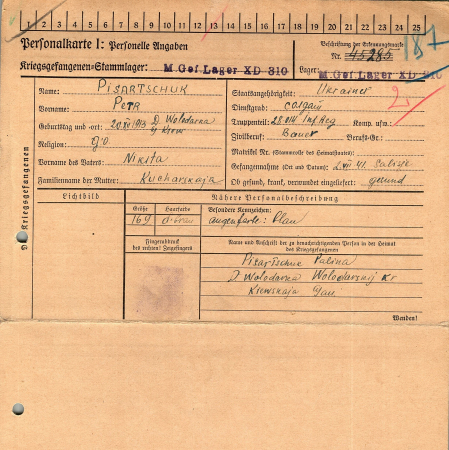 1 2 3 4 5 6 7 8 9 10 11 12 13 14 15 16 17 18 19 20 21 22 23 24 25
Personalkarte I: Personelle Angaben
Beschriftung der Erkennungsmarke
Nr. 45285
187
Kriegsgefangenen-Stammlager: M.Gef.Lager XD 310
Lager: M.Gef.Lager XD 310
2
Name: PISARTSCHUK
Vorname: Petr
Geburtstag und -ort: 1913 D Wolodarka
Religion: g.o.
Vorname des Vaters: Nikita
Familienname der Mutter: Kucharskaja
Staatsangehörigkeit: Ukrainer
Dienstgrad: Soldat
Truppenteil: Komp. usw.:
Zivilberuf: Bauer Berufs-Gr.:
Matrikel Nr. (Stammrolle des Heimatstaates):
Gefangennahme (Ort und Datum):
Ob gesund, krank, verwundet eingeliefert: gesund
Des Kriegsgefangenen
Lichtbild
Nähere Personalbeschreibung
Größe
169
Haarfarbe
Besondere Kennzeichen:
Augenfarbe: Blau
Fingerabdruck
des rechten! Zeigefingers
Name und Anschrift der zu benachrichtigenden Person in der Heimat
des Kriegsgefangenen
Pisartschuk Palina
D. Wolodarka Wolodarskij Kr
Kiewskaja
Wenden!